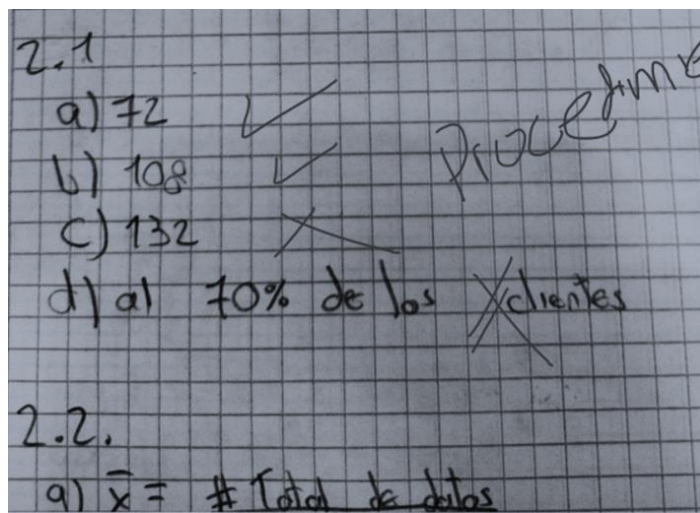 2.1
a) 72
b) 108
c) 132
d) al 70% de los clientes
2.2.
a) x̄ = # Total de datos